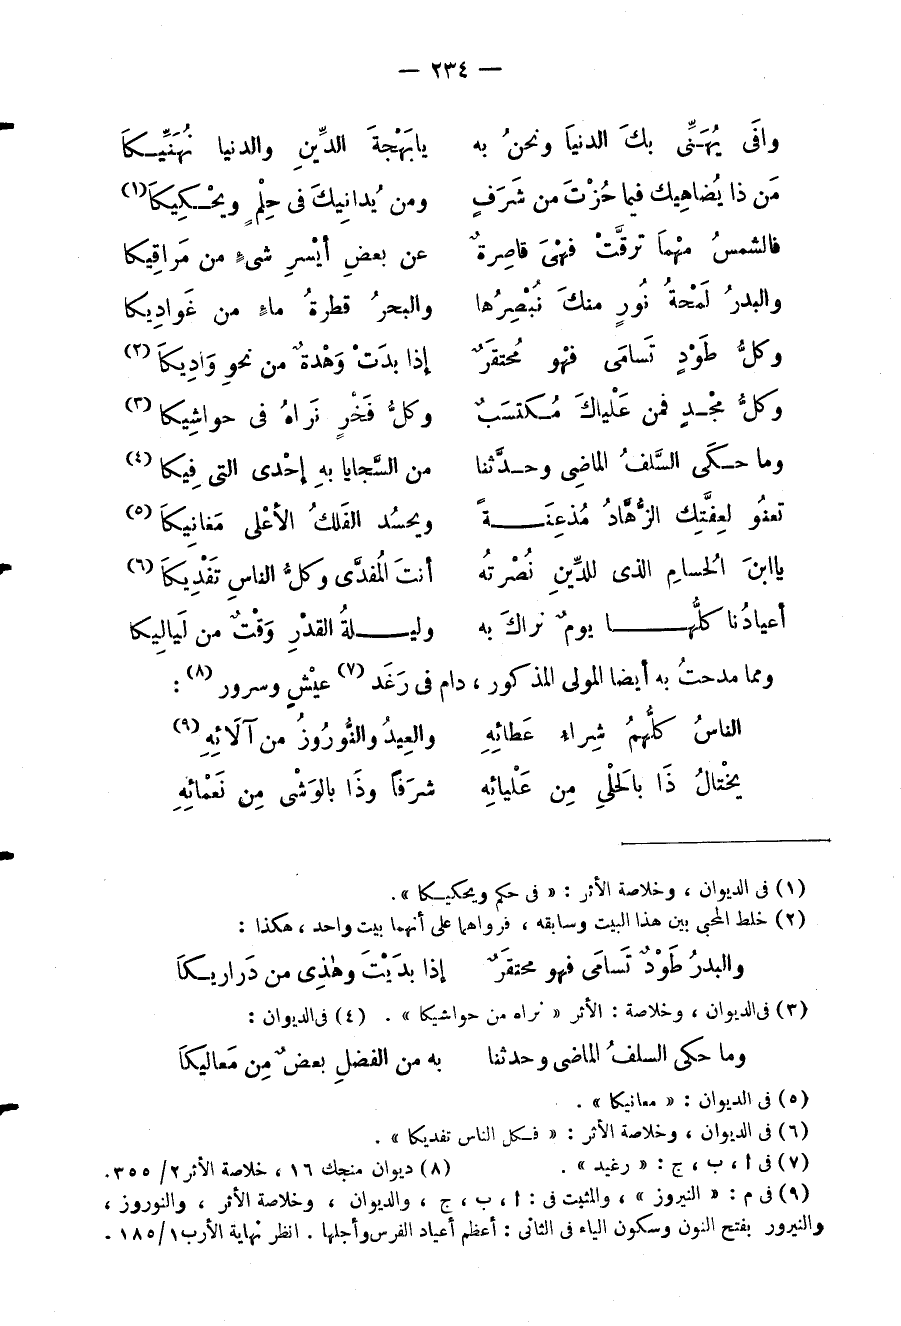 — ٢٣٤ —
وافَى يُهَـنِّى بكَ الدنيَا ونحنُ به يابَهْجةَ الدِّينِ والدنيا نُهَنِّيـكاَ
مَن ذا يُضاهِيك فيما حُزْتَ من شَرَفٍ ومن يُدانِيكَ فى حِلْمٍ ويحْـكِيكاَ (١)
فالشمسُ مهْماَ ترقَّتْ فهْىَ قاصِرةٌ عن بعضِ أيْسرِ شىءٍ من مَراقِيكا
والبدرُ لَمْحةُ نُورٍ منكَ نُبْصِرُها والبحرُ قطرةُ ماءٍ من غَوادِيكا
وكلُّ طَوْدٍ تَسامَى فهْو مُحتقَرٌ إذا بدَتْ وَهْدةٌ من نحوِ وَادِيكاَ (٢)
وكلُّ مجْـدٍ فمن عَلْياكَ مُـكتسَبٌ وكلُّ فَخْرٍ نَراهُ فى حواشِيكا (٣)
وما حـكَى السَّلفُ الماضِى وحـدَّثنا من السَّجايا بهِ إحْدى التى فِيكا (٤)
تعنُو لعِفَّتِك الزُّهَّادُ مُذعِنَــــــةً ويحسُد الفَلكُ الأعْلى مَغانِيكاَ (٥)
ياابنَ الحُسامِ الذى للدِّينِ نُصْرتُه أنتَ المُفدَّى وكلُّ الناسِ تَفْدِيكاَ (٦)
أعيادُنا كلُّهــــــــا يومٌ نراكَ به وليــــــلةُ القدْرِ وَقْتٌ من لَيالِيكا
ومما مدحتُ به أيضا المولى المذكور ، دام فى رَغَد (٧) عيْشٍ وسرور (٨) :
الناسُ كلُّهمُ شِراء عَطائهِ والعِيدُ والنُّورُوزُ من آلَائِهِ (٩)
يخْتالُ ذَا بالحَلْىِ مِن عَلْيائِه شرَفاً وذَا بالوَشْىِ مِن نَعَمْائِهِ
(١) فى الديوان ، وخلاصة الأثر : « فى حكم ويحكيـكا ».
(٢) خلط المحبى بين هذا البيت وسابقه ، فرواهما على أنهما بيت واحد ، هكذا :
والبدرُ طَوْدٌ تَسامَى فهو محتقَرٌ إذا بدَيْتَ وهٰذِى من دَراريـكاَ
(٣) فى الديوان ، وخلاصة : الأثر « نراه من حواشيكا » . (٤) فى الديوان :
وما حكى السلفُ الماضى وحدثنا به من الفضلِ بعضٌ مِن مَعاليكاَ
(٥) فى الديوان : « معانيكا » .
(٦) فى الديوان ، وخلاصة الأثر : « فـكل الناس تفديكا » .
(٧) فى أ ، ب ، ج : « رغيد » . (٨) ديوان منجك ١٦ ، خلاصة الأثر ٢/ ٣٥٥.
(٩) فى م : « النيروز » ، والمثبت فى : أ ، ب ، ج ، والديوان ، وخلاصة الأثر ، والنوروز ،
والنيرور بفتح النون وسكون الياء فى الثانى : أعظم أعياد الفرس وأجلها . انظر نهاية الأرب ١/ ١٨٥ .